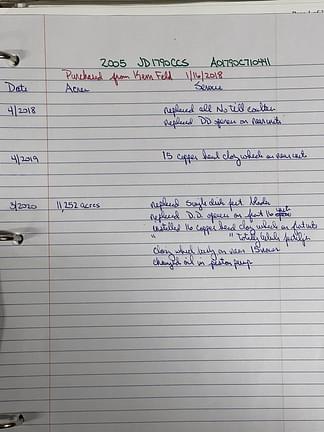 2005 JD1790CCS A01790C710441
Purchased from Kern Feld 1/16/2018
Date Acres Service
4/2018 replaced all No till coulters
replaced DD openers on rear units
4/2019 15 copper head closing wheels on rear units
3/2020 11,252 acres replaced single disk fert blades
replaced D.D. openers on front 16
installed 16 copper head closing wheels on front units
" "
closing wheel on rear 15 rows
changed oil in piston pump